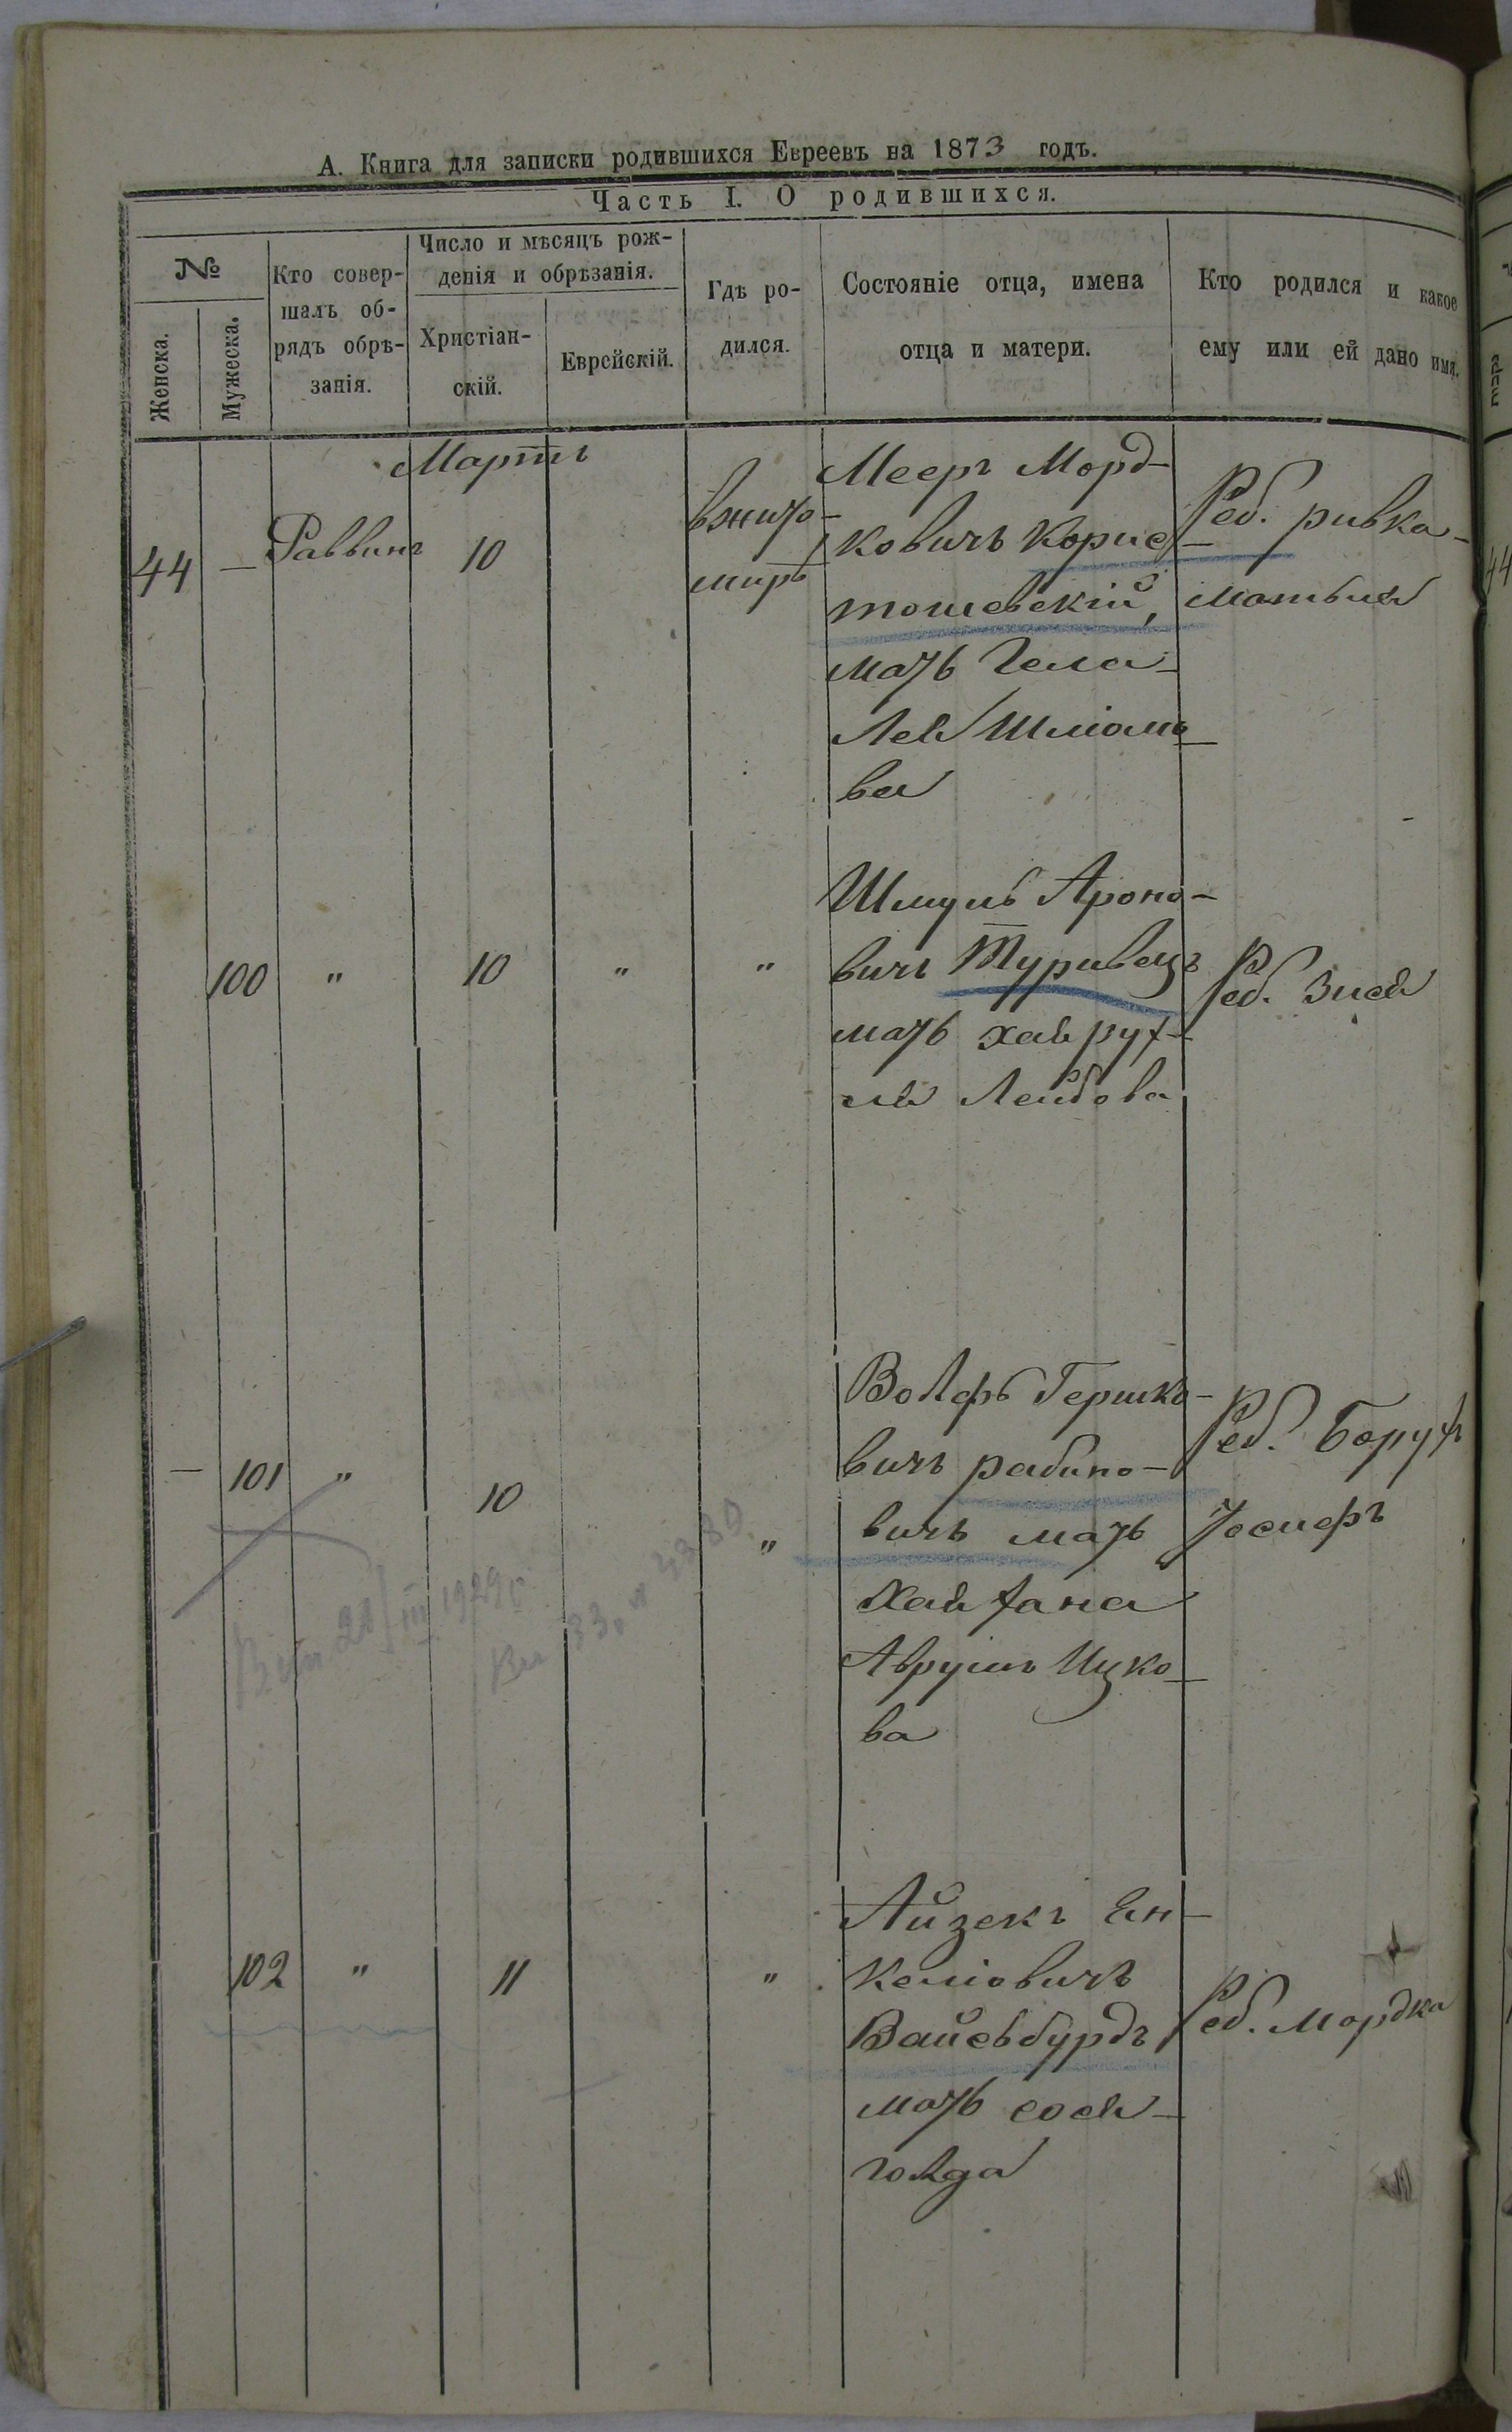 А. Книга для записки родившихся Евреевъ на 1873 годъ.
Часть I. О родившихся.
№
Женска.
Мужеска.
Кто совер-
шалъ об-
рядъ обрѣ-
занія.
Число и мѣсяцъ рож-
денія и обрѣзанія.
Христіан-
скій.
Еврейскій.
Гдѣ ро-
дился.
Состояніе отца, имена
отца и матери.
Кто родился и какое
ему или ей дано имя.
Мартъ
44 — Раввинъ 10
вжито-
миръ
Мееръ Морд-
ковичъ Корис-
тошевскій,
мать Гела
Лея Шліомо-
ва
Реб. ривка-
матыля
100 " 10 " "
Шмуль Ароно-
вичъ Туривецъ
мать хая рух-
ля Лейбова
Реб. Зися
— 101 " 10 "
Волфъ Гершко-
вичъ рабино-
вичъ мать
Хая хана
Аврумъ Ицко-
ва
Реб. Борухъ
Іосифъ
102 " 11 "
Айзекъ Ен-
келіовичъ
Вайсъбурдъ,
мать сося
голда
Реб. Мордка